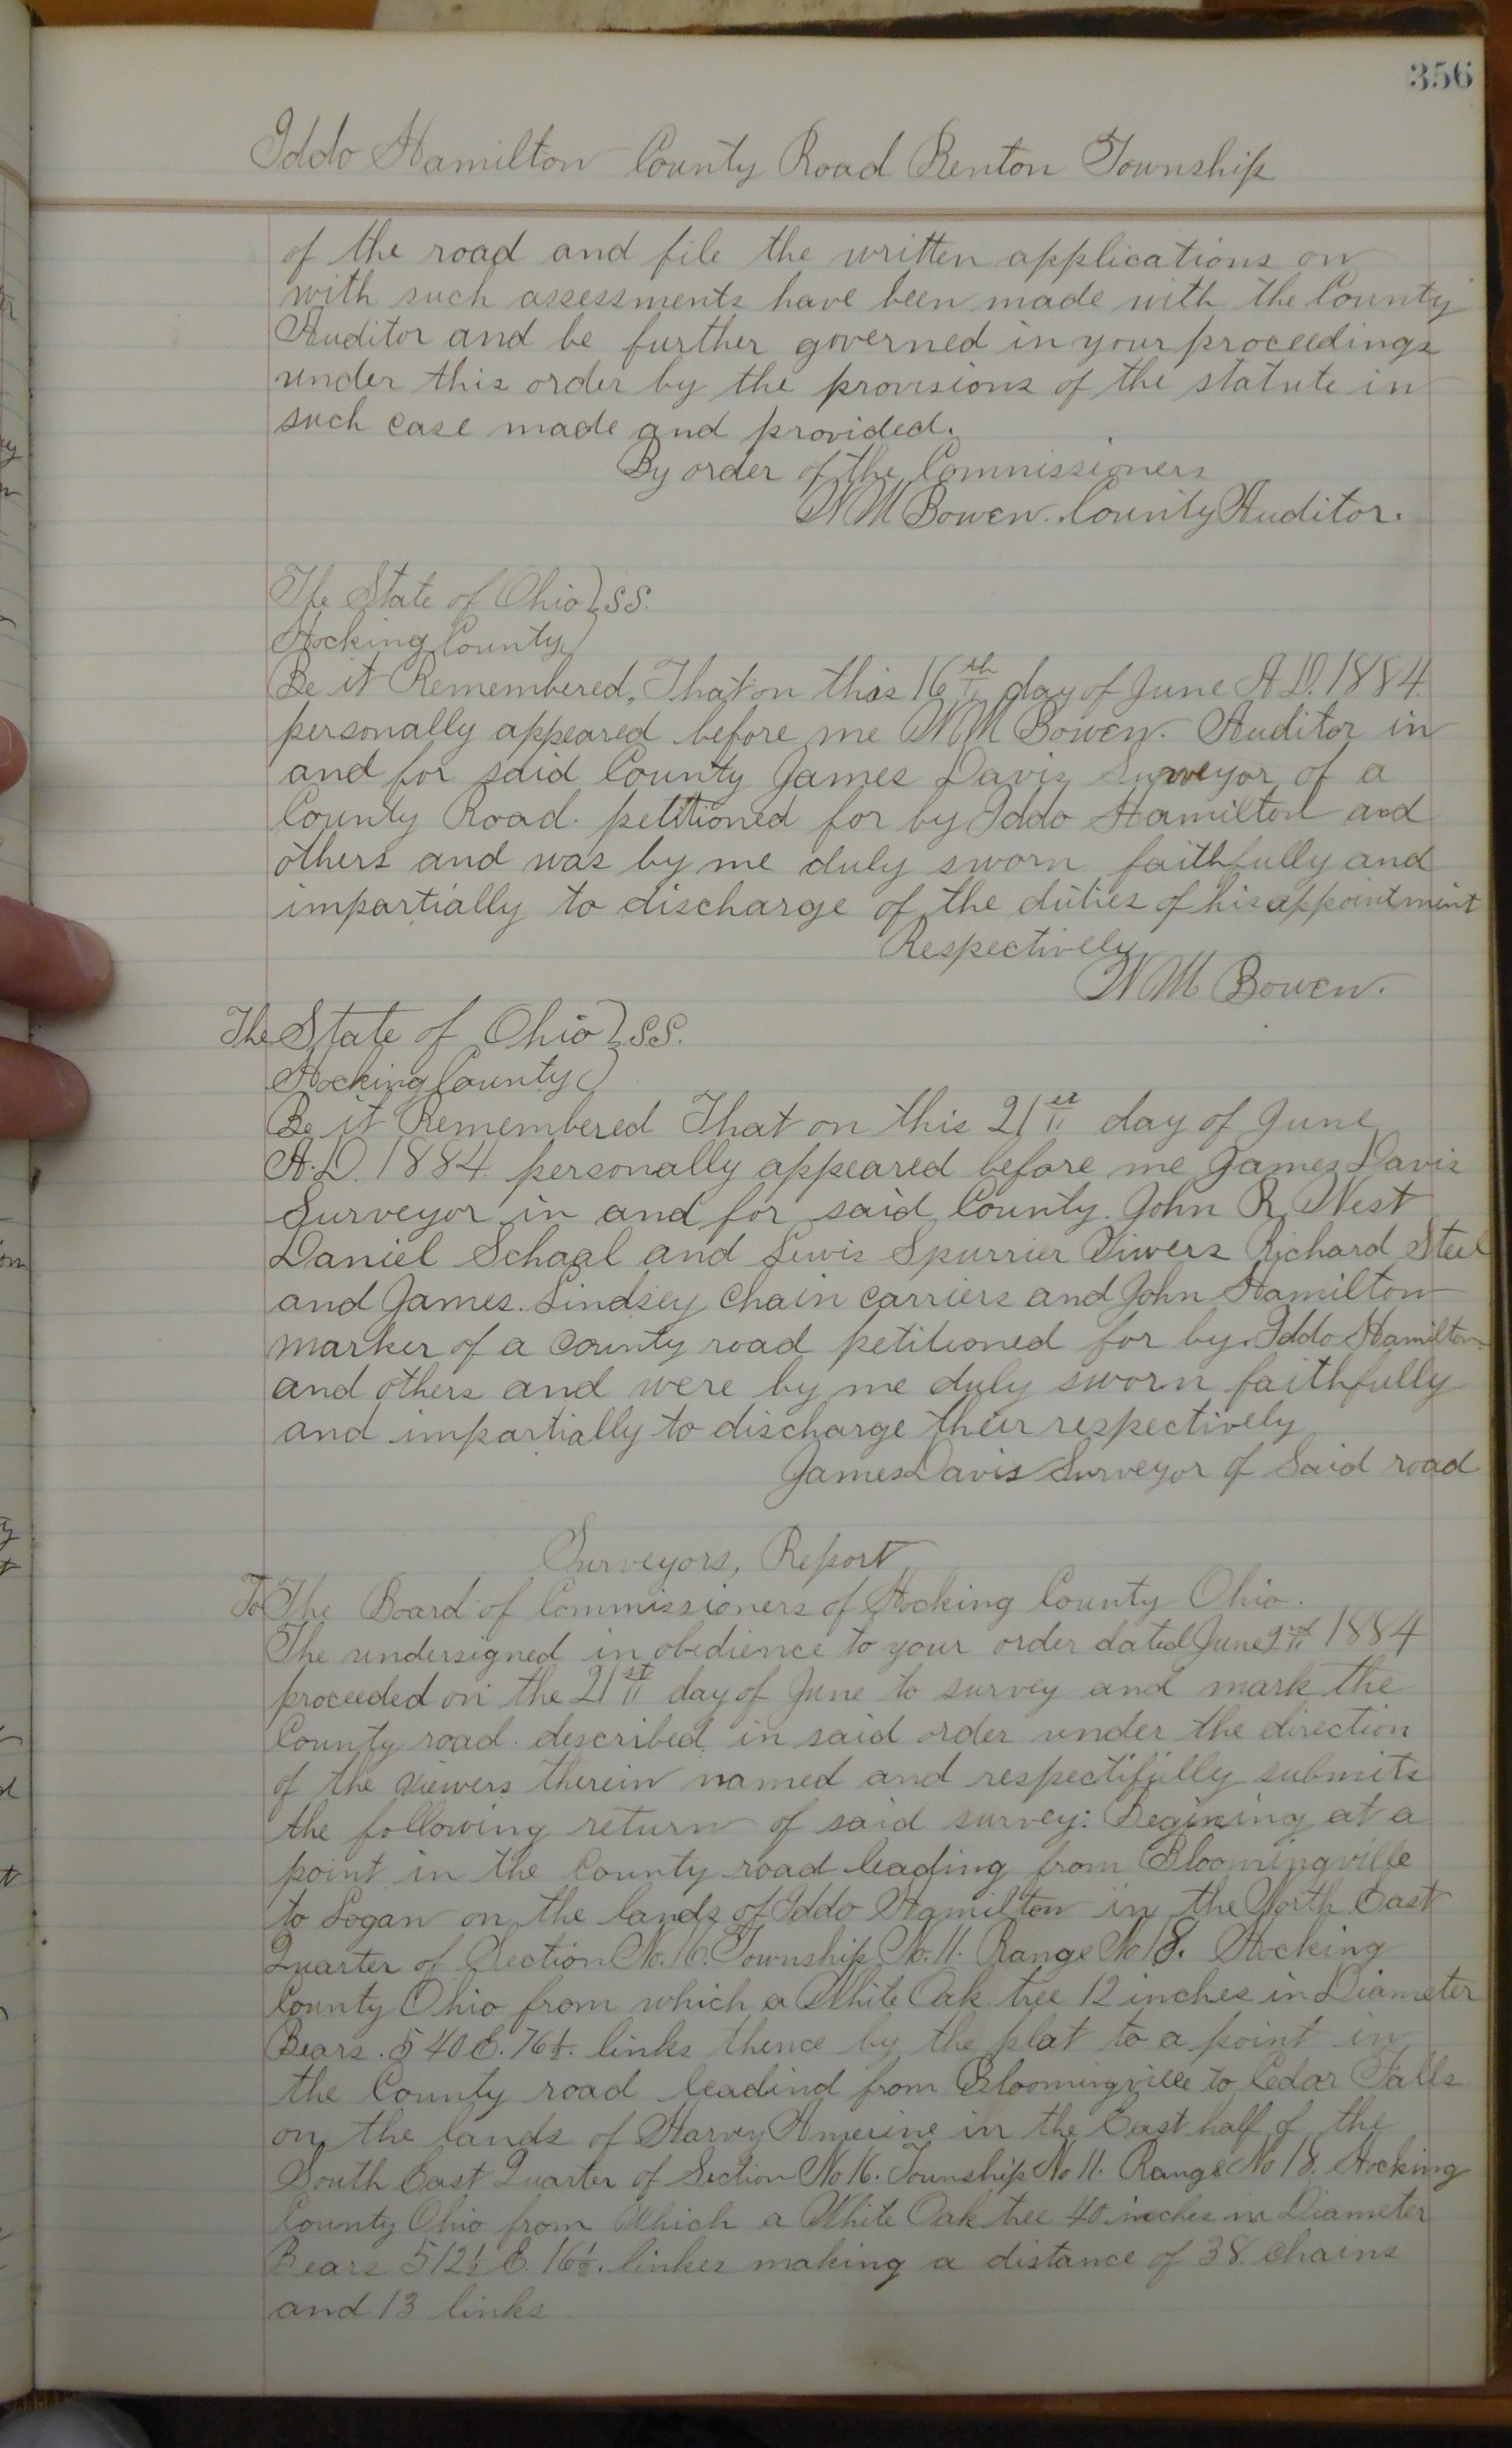 356
Iddo Hamilton County Road Benton Township
of the road and file the written applications on
with such assessments have been made with the County
Auditor and be further governed in your proceedings
under this order by the provisions of the statute in
such case made and provided.
By order of the Commissioners
W M Bowen. County Auditor.
The State of Ohio } SS.
Hocking County }
Be it Remembered, That on this 16th day of June A.D. 1884
personally appeared before me W M Bowen. Auditor in
and for said County James Davis Surveyor of a
County Road. petitioned for by Iddo Hamilton and
others and was by me duly sworn faithfully and
impartially to discharge of the duties of his appointment
Respectively
W M Bowen.
The State of Ohio } S.S.
Hocking County }
Be it Remembered That on this 21st day of June
A.D. 1884 personally appeared before me James Davis
Surveyor in and for said County. John R West
Daniel Schaal and Lewis Spurrier Viwers Richard Steel
and James. Lindsey Chain carriers and John Hamilton
marker of a county road petitioned for by Iddo Hamilton
and others and were by me duly sworn faithfully
and impartially to discharge their respectively
James Davis Surveyor of Said road
Surveyors, Report
To The Board of Commissioners of Hocking County Ohio.
The undersigned in obedience to your order dated June 2nd 1884
proceeded on the 21st day of June to survey and mark the
County road described in said order under the direction
of the viewers therein named and respectifully submits
the following return of said survey: Begining at a
point in the County road leading from Bloomingville
to Logan on the lands of Iddo Hamilton in the North East
Quarter of Section No. 16. Township No. 11. Range No 18. Hocking
County Ohio from which a White Oak tree 12 inches in Diameter
Bears. S 40 E. 76½. links thence by the plat to a point in
the County road leadind from Bloomingville to Cedar Falls
on the lands of Harvey Amerine in the East half of the
South East Quarter of Section No 16. Township No 11. Range No 18. Hocking
County Ohio from Which a White Oak tree 40 inches in Diameter
Bears S 12½ E. 16½. linkes making a distance of 38. Chains
and 13 links